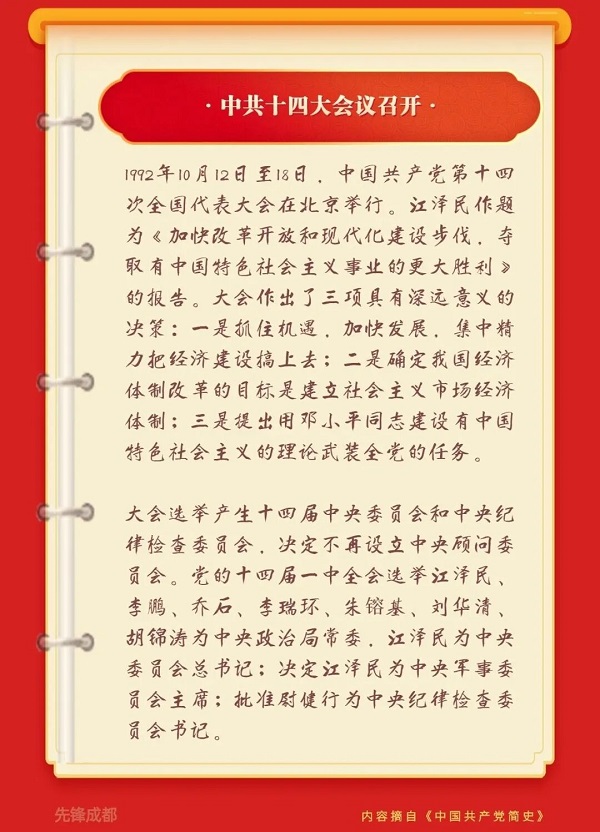 ·中共十四大会议召开·
1992年10月12日至18日，中国共产党第十四
次全国代表大会在北京举行。江泽民作题
为《加快改革开放和现代化建设步伐，夺
取有中国特色社会主义事业的更大胜利》
的报告。大会作出了三项具有深远意义的
决策：一是抓住机遇，加快发展，集中精
力把经济建设搞上去；二是确定我国经济
体制改革的目标是建立社会主义市场经济
体制；三是提出用邓小平同志建设有中国
特色社会主义的理论武装全党的任务。
大会选举产生十四届中央委员会和中央纪
律检查委员会，决定不再设立中央顾问委
员会。党的十四届一中全会选举江泽民、
李鹏、乔石、李瑞环、朱镕基、刘华清、
胡锦涛为中央政治局常委，江泽民为中央
委员会总书记；决定江泽民为中央军事委
员会主席；批准尉健行为中央纪律检查委
员会书记。
先锋成都
内容摘自《中国共产党简史》